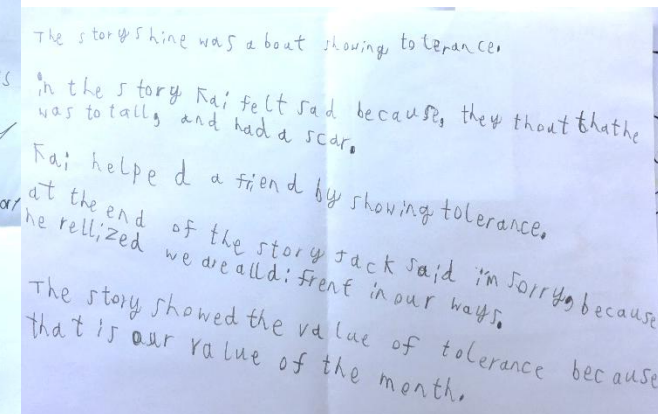 The story Shine was about showing tolerance.
in the story Kai felt sad because, they thout thathe
was to tall, and had a scar.
Kai helped a fiend by showing tolerance.
at the end of the story Jack said i'm sorry, because
he rellized we are all difrent in our ways.
The story showed the value of tolerance because
that is our value of the month.